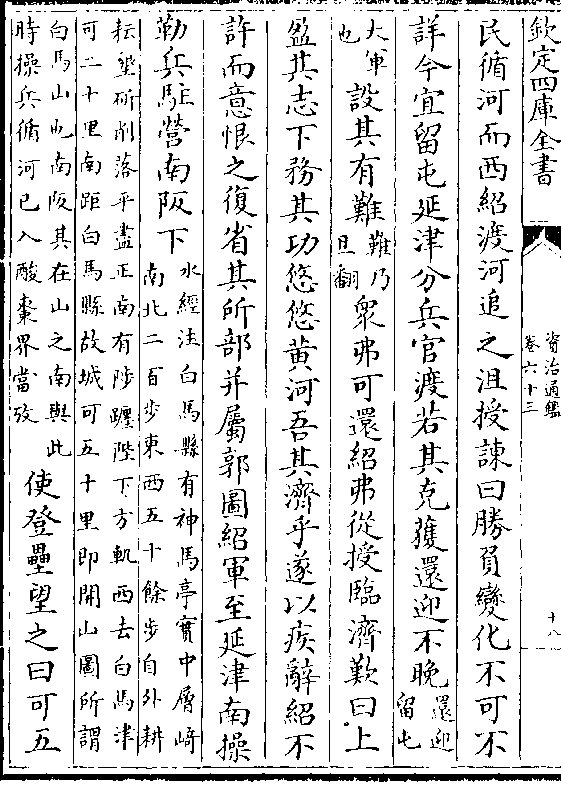 欽定四庫全書
資治通鑑
卷六十三
十八
民循河而西紹渡河追之沮授諫曰勝負變化不可不
詳今宜留屯延津分兵官渡若其克獲還迎不晚
還迎
留屯
大軍
也
設其有難
難乃
旦翻
衆弗可還紹弗從授臨濟歎曰上
盈其志下務其功悠悠黄河吾其濟乎遂以疾辭紹不
許而意恨之復省其所部并屬郭圖紹軍至延津南操
勒兵駐營南阪下
水經注白馬縣有神馬亭實中層峙
南北二百步東西五十餘步自外耕
耘墾斫削落平盡正南有陟躔陛下方軌西去白馬津
可二十里南距白馬縣故城可五十里即開山圖所謂
白馬山也南阪其在山之南與此
時操兵循河已入酸棗界當攷
使登壘望之曰可五